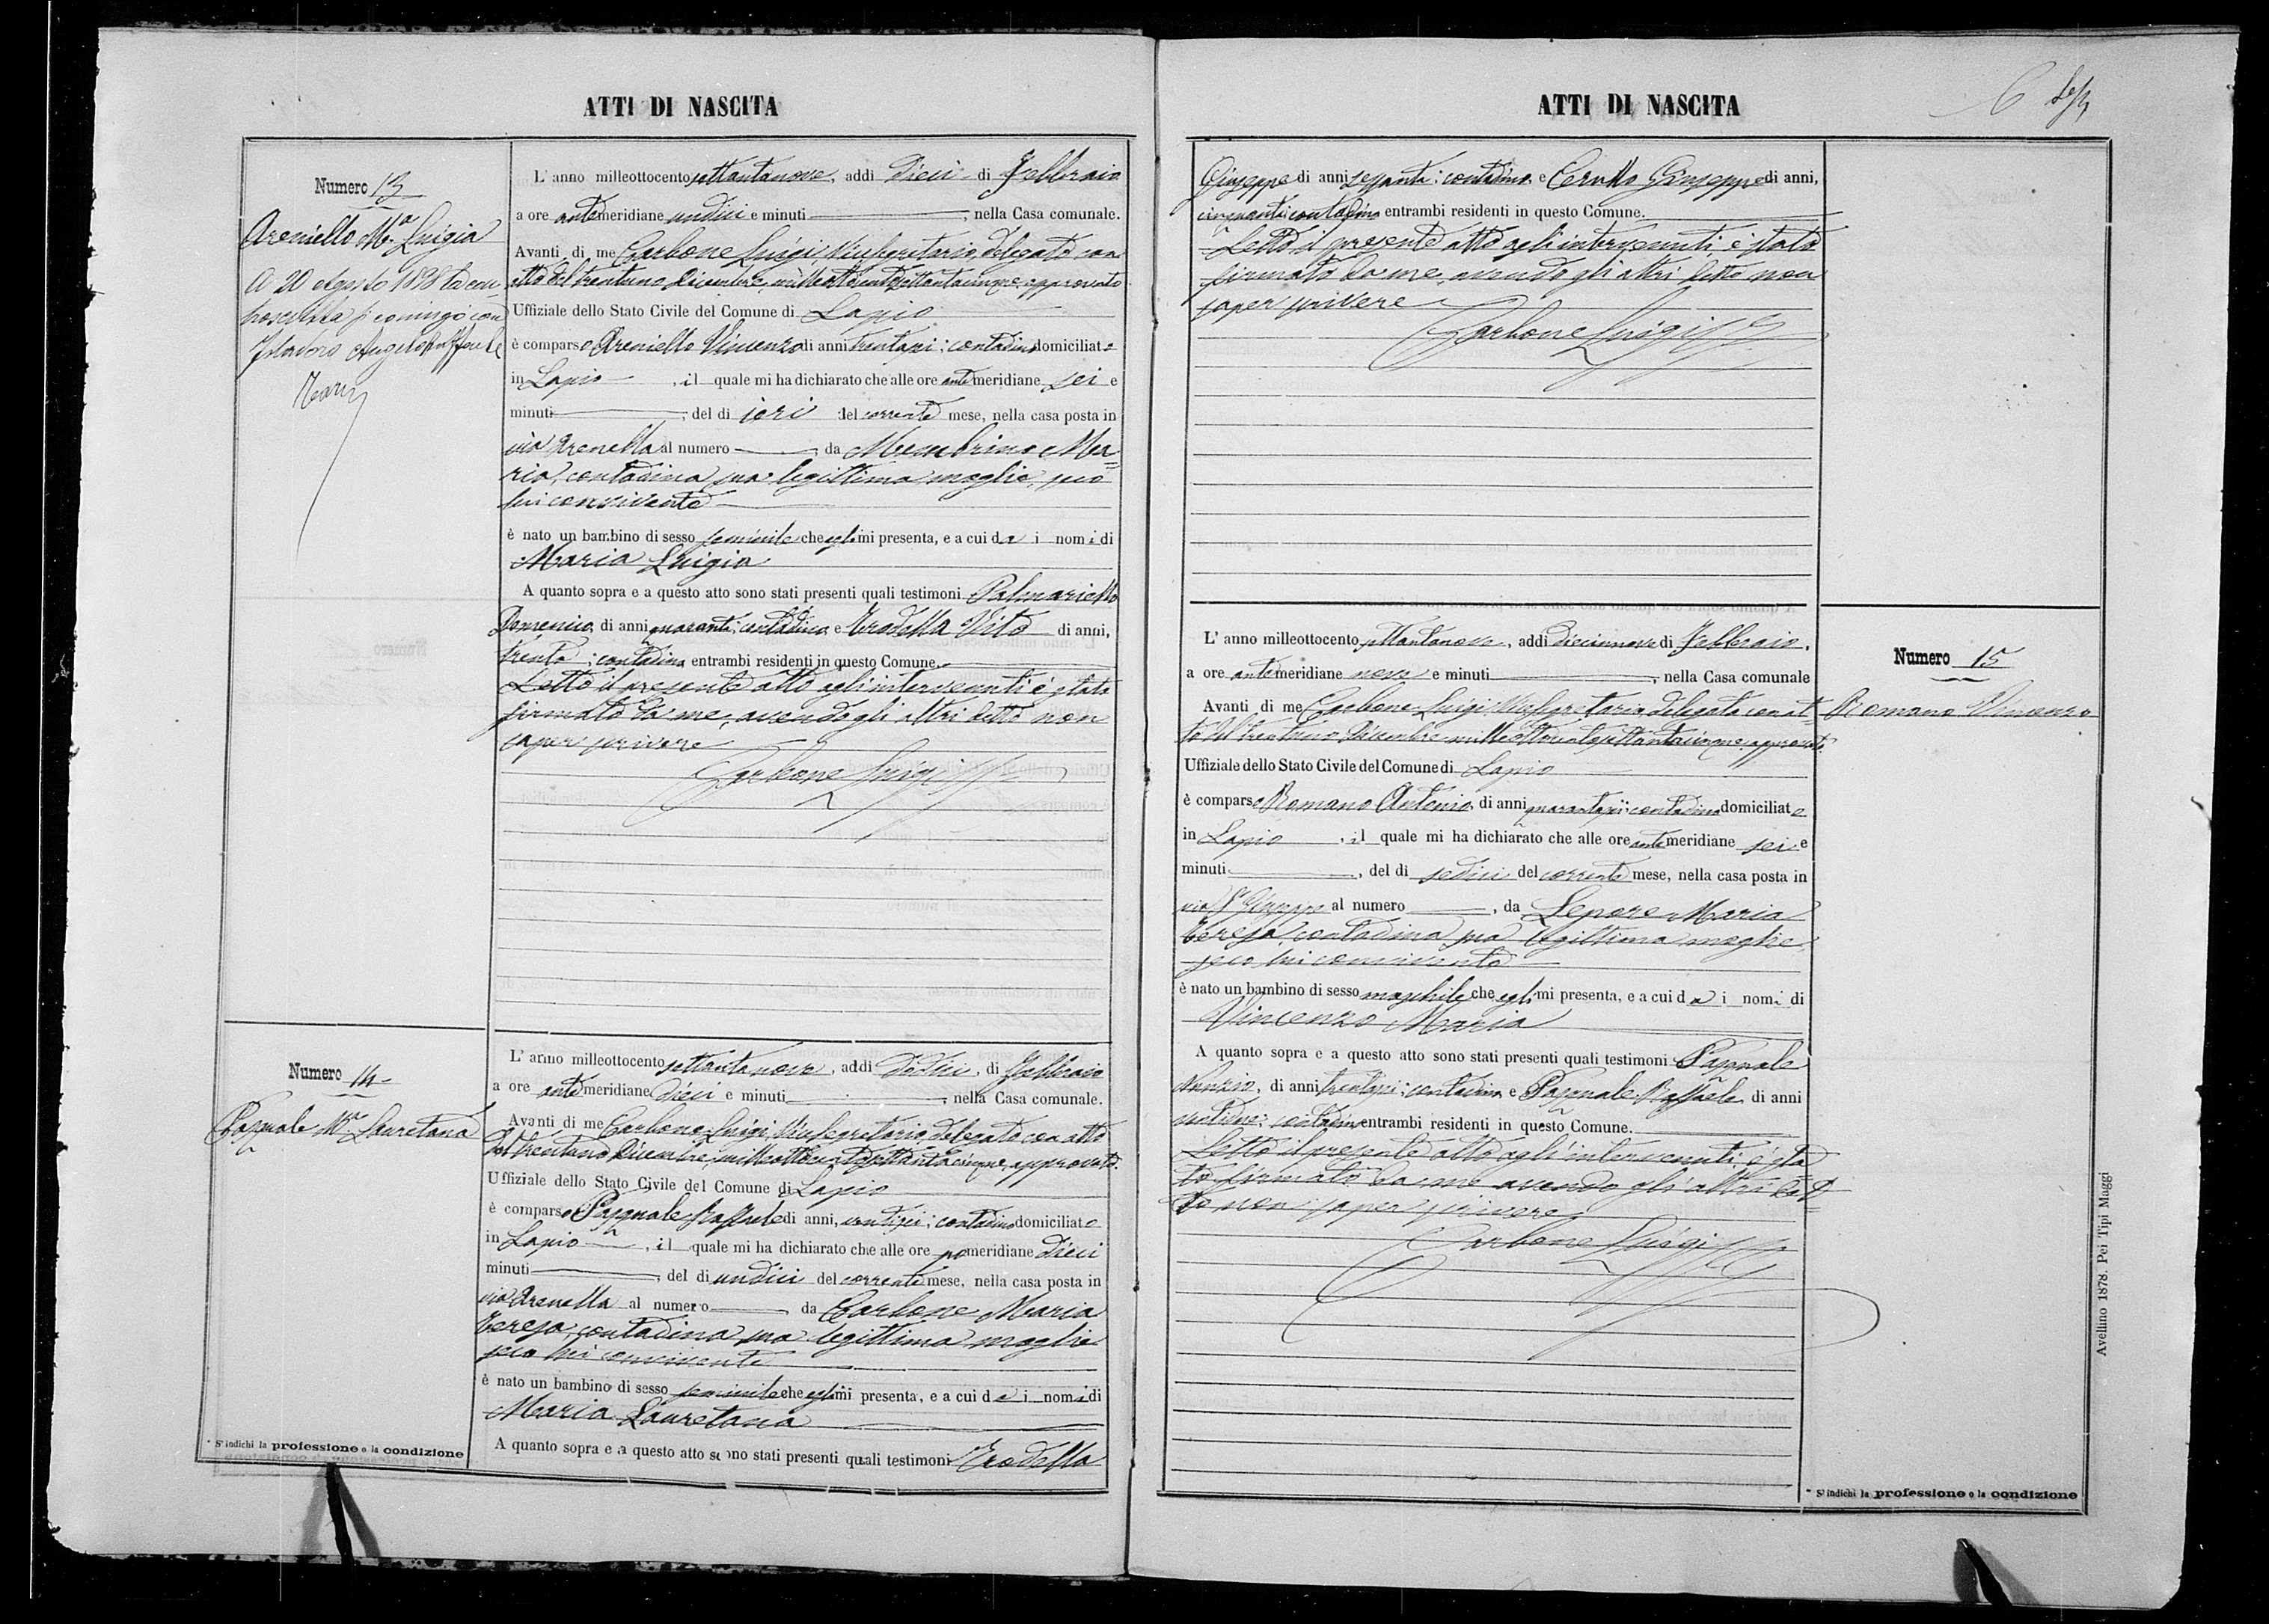 ATTI DI NASCITA
Numero 13
Areniello M.a Luigia
A 20 Agosto 1898 ha con
con
L'anno milleottocento settantanove, addi dieci di Febbraio
a ore antemeridiane undici e minuti , nella Casa comunale.
Avanti di me Carbone Luigi, Vicesegretario, delegato con
atto del trentuno Dicembre, milleottocentosettantacinque, approvato
Uffiziale dello Stato Civile del Comune di Lapio
è comparso Areniello Vincenzo di anni trentasei; contadino domiciliato
in Lapio , il quale mi ha dichiarato che alle ore antemeridiane sei e
minuti , del di ieri del corrente mese, nella casa posta in
via Arenella al numero da Membrino Ma=
ria, contadina sua legittima moglie, seco
lui convivente
è nato un bambino di sesso feminile che egli mi presenta, e a cui da i nomi di
Maria Luigia
A quanto sopra e a questo atto sono stati presenti quali testimoni Palmariello
Domenico, di anni quaranta; contadino e Trodella Vito di anni,
trenta; contadino entrambi residenti in questo Comune.
Letto il presente atto agli intervenuti è stato
firmato da me, avendo gli altri detto non
saper scrivere
Carbone Luigi
Numero 14
Pasquale M.a Lauretana
L'anno milleottocento settantanove, addi dodici, di Febbraio
a ore antemeridiane dieci e minuti , nella Casa comunale.
Avanti di me Carbone Luigi, Vicesegretario, delegato con atto
del trentuno Dicembre, milleottocentosettantacinque, approvato.
Uffiziale dello Stato Civile del Comune di Lapio
è comparso Pasquale Raffaele di anni, ventisei; contadino domiciliato
in Lapio , il quale mi ha dichiarato che alle ore pomeridiane dieci
minuti , del di undici del corrente mese, nella casa posta in
via Arenella al numero da Carbone Maria
Teresa, contadina sua legittima moglie
seco lui convivente
è nato un bambino di sesso feminile che egli mi presenta, e a cui da i nomi di
Maria Lauretana
A quanto sopra e a questo atto sono stati presenti quali testimoni Trodella
* S'indichi la professione o la condizione
ATTI DI NASCITA
6
Giuseppe di anni sessanta; contadino, e Cerullo Giuseppe di anni,
cinquanta; contadino entrambi residenti in questo Comune.
Letto il presente atto agli intervenuti, è stato
firmato da me, avendo gli altri detto non
saper scrivere
Carbone Luigi
L'anno milleottocento settantanove, addi diecinnove di Febbraio,
a ore antemeridiane nove e minuti , nella Casa comunale
Avanti di me Carbone Luigi, Vicesegretario, delegato con at=
to del trentuno Dicembre milleottocentosettantacinque, approvato.
Uffiziale dello Stato Civile del Comune di Lapio
è comparso Romano Antonio, di anni quarantasei; contadino domiciliato
in Lapio , il quale mi ha dichiarato che alle ore antemeridiane sei e
minuti , del di sedici del corrente mese, nella casa posta in
via S. Giuseppe al numero , da Lepore Maria
Teresa, contadina sua legittima moglie,
seco lui convivente
è nato un bambino di sesso maschile che egli mi presenta, e a cui da i nomi di
Vincenzo Maria
A quanto sopra e a questo atto sono stati presenti quali testimoni Pasquale
Nunzio, di anni trentasei; contadino e Pasquale Raffaele di anni
contadino entrambi residenti in questo Comune.
Letto il presente atto agli intervenuti, è sta=
to firmato da me avendo gli altri det=
to non saper scrivere
Carbone Luigi
Numero 15
Romano Vincenzo
* S'indichi la professione o la condizione
Avellino 1878. Pei Tipi Maggi